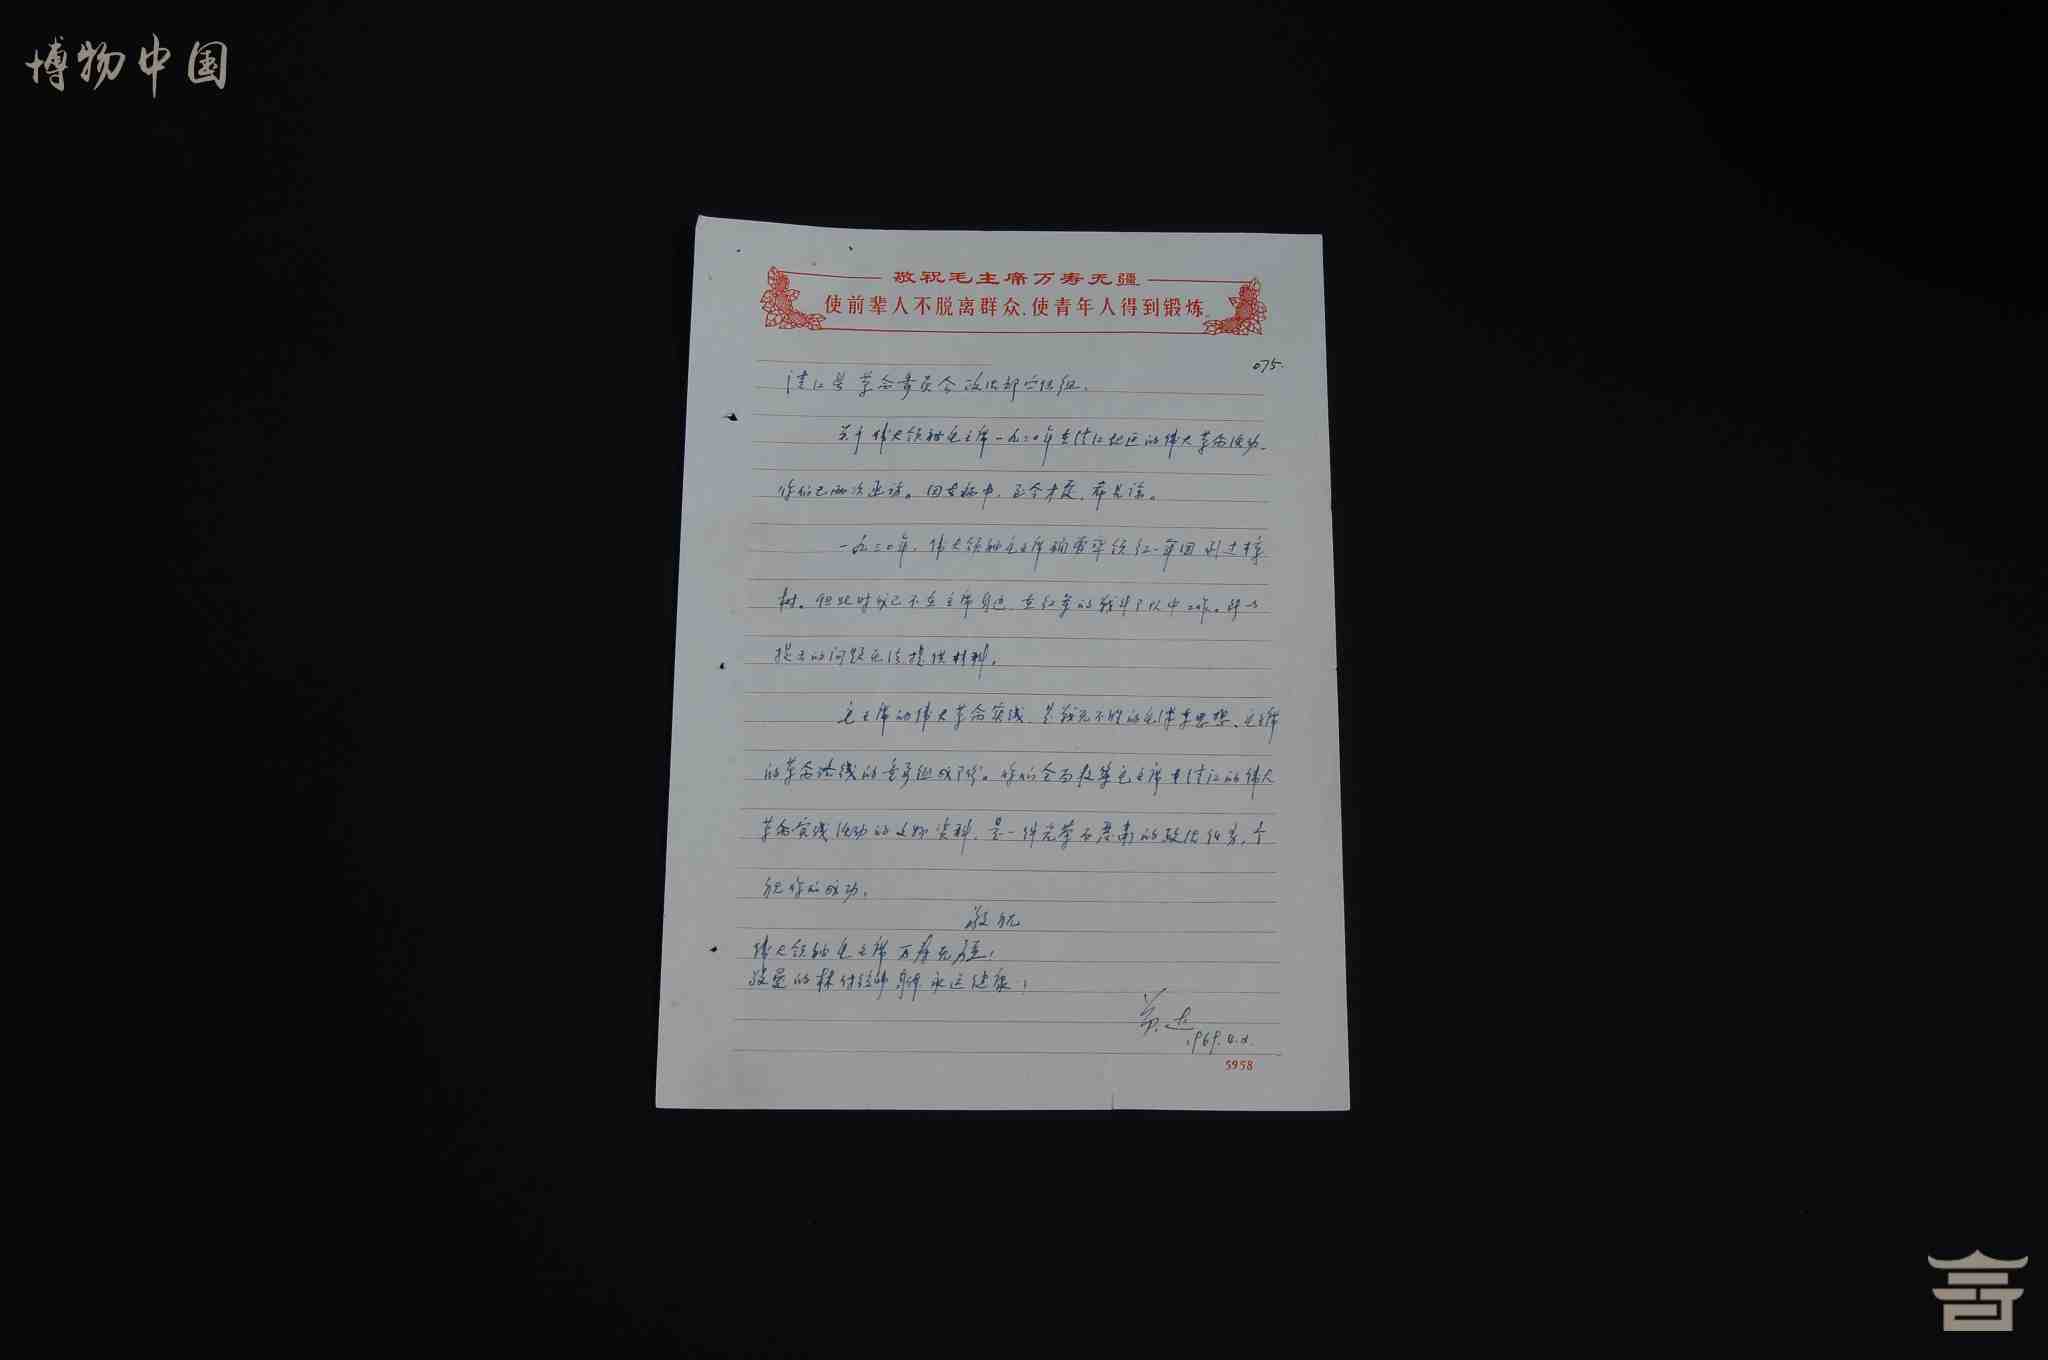 博物中国
敬祝毛主席万寿无疆
使前辈人不脱离群众.使青年人得到锻炼.
075.
清江县革命委员会政治部
关于伟大领袖毛主席一九三0年在清江地区的伟大革命活动.
你们已两次函访。因在病中,至今才复,希见谅。
一九三0年,伟大领袖毛主席确曾率领红一军团到过樟
树。但此时我已不在主席身边,在红军的战斗部队中工作。
提出的问题无法提供材料。
毛主席的伟大革命实践,是战无不胜的毛泽东思想、毛主席
的革命路线的重要组成部分。你们全面收集毛主席在清江的伟大
革命实践活动的文物资料,是一件光荣而严肃的政治任务,予
祝你们成功。
敬祝
伟大领袖毛主席万寿无疆!
敬爱的林付统帅身体永远健康!
1969.
5958